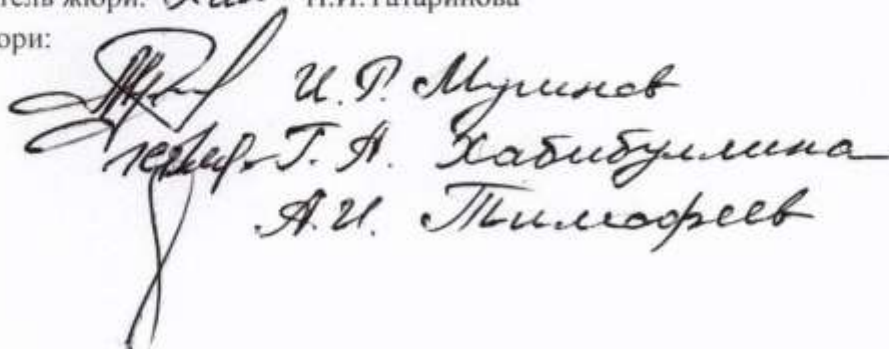 тель жюри: Н.И. Татаринова
юри:
И. Р. Муринов
Г. А. Хабибуллина
А.И. Тимофеев